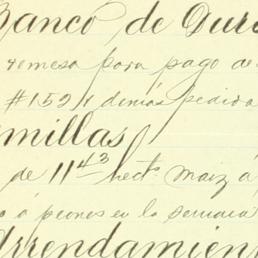 Banco de Dura
remesa para pago de
#152 y demás pedido
millas
de 11 43 hect. maiz á
ó peones en la semana
Arrendamien